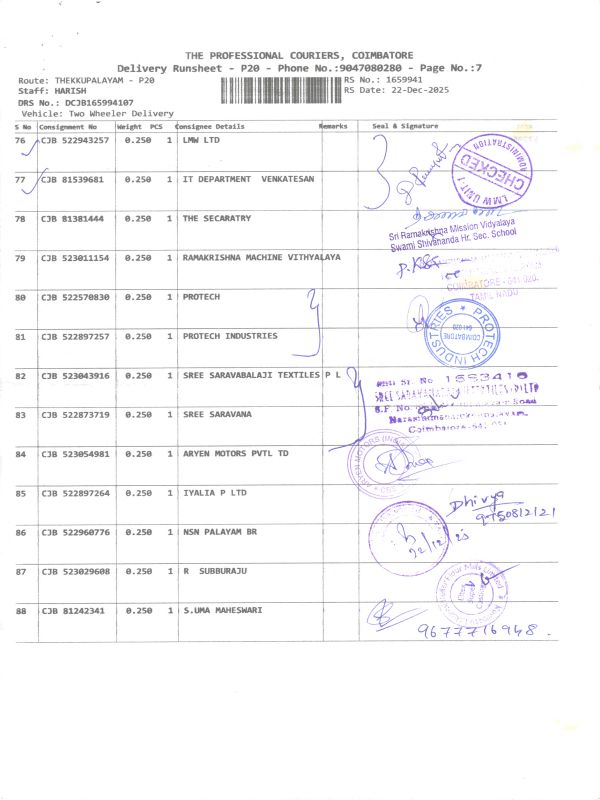 THE PROFESSIONAL COURIERS, COIMBATORE
Delivery Runsheet - P20 - Phone No.:9047080280 - Page No.:7
Route: THEKKUPALAYAM - P20 RS No.: 1659941
Staff: HARISH RS Date: 22-Dec-2025
DRS No.: DCJB165994107
Vehicle: Two Wheeler Delivery
S No Consignment No Weight PCS Consignee Details Remarks Seal & Signature
76 CJB 522943257 0.250 1 LMW LTD
LMW UNIT-I CHECKED ADMINISTRATION
77 CJB 81539681 0.250 1 IT DEPARTMENT VENKATESAN
78 CJB 81381444 0.250 1 THE SECARATRY
Sri Ramakrishna Mission Vidyalaya
Swami Shivananda Hr. Sec. School
79 CJB 523011154 0.250 1 RAMAKRISHNA MACHINE VITHYALAYA
COIMBATORE - 641 020.
TAMIL NADU
80 CJB 522570830 0.250 1 PROTECH
PROTECH INDUSTRIES COIMBATORE 641 020
81 CJB 522897257 0.250 1 PROTECH INDUSTRIES
82 CJB 523043916 0.250 1 SREE SARAVABALAJI TEXTILES P L
83 CJB 522873719 0.250 1 SREE SARAVANA
84 CJB 523054981 0.250 1 ARYEN MOTORS PVTL TD
ARYEN MOTORS
85 CJB 522897264 0.250 1 IYALIA P LTD
Dhivya
86 CJB 522960776 0.250 1 NSN PALAYAM BR
22/12/25
87 CJB 523029608 0.250 1 R SUBBURAJU
88 CJB 81242341 0.250 1 S.UMA MAHESWARI
9677716948.